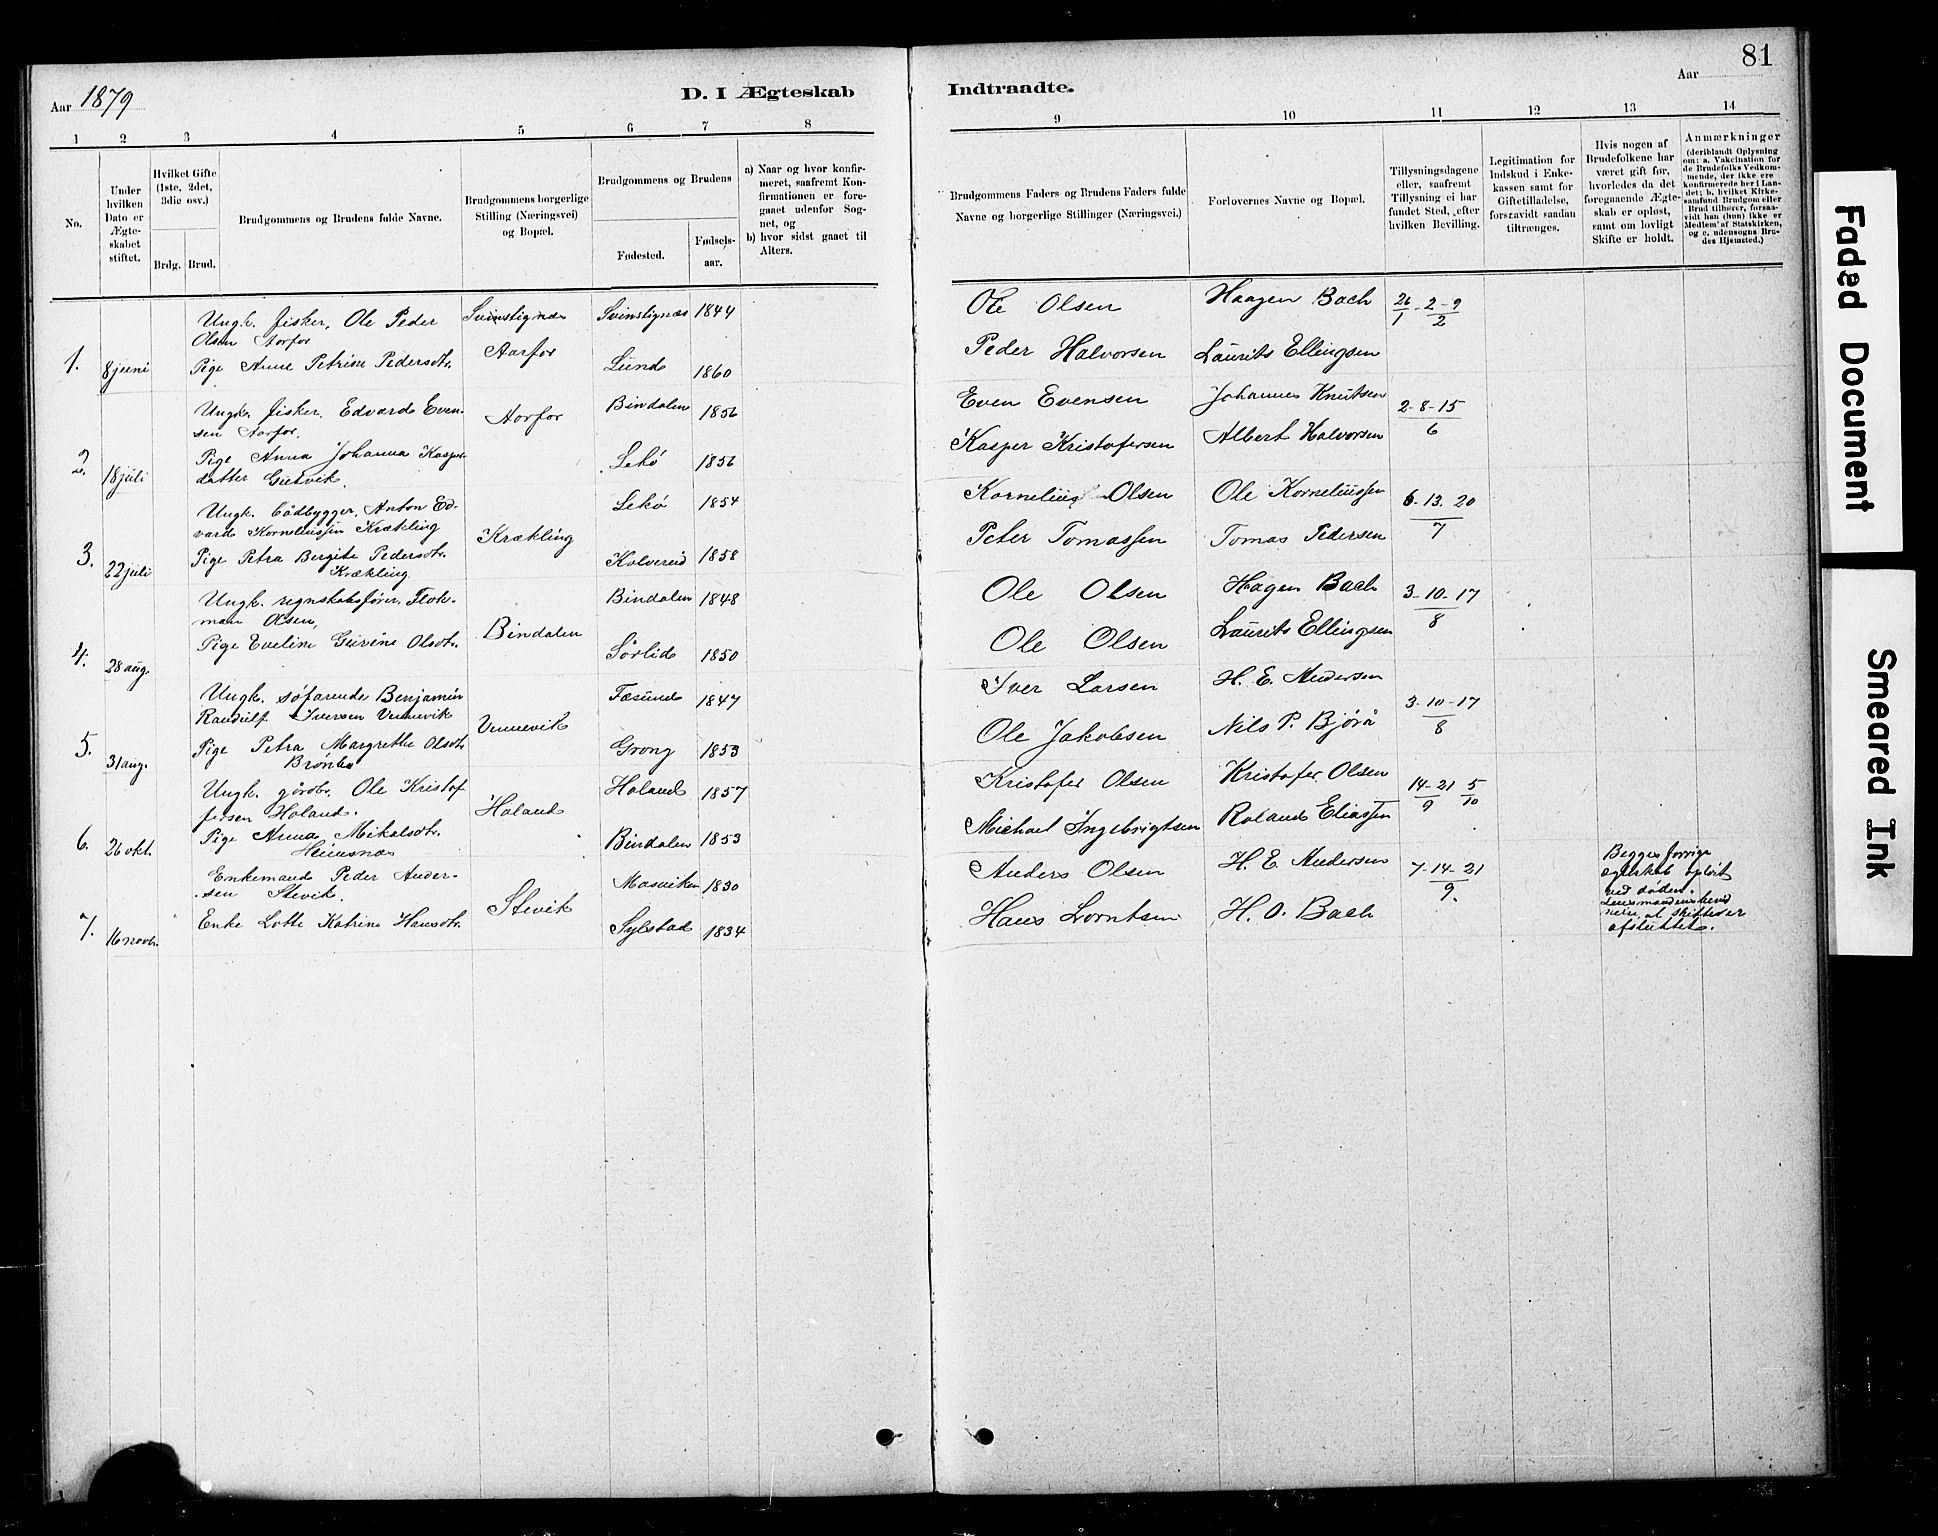 Aar 1879
D. I Ægteskab
Indtraadte.
Aar
81
1 2 3 4 5 6 7 8
9 10 11 12 13 14
No.
Under hvilken Dato er Ægte-skabet stiftet.
Hvilket Gifte (1ste, 2det, 3die osv.)
Brdg. Brud.
Brudgommens og Brudens fulde Navne.
Brudgommens borgerlige Stilling (Næringsvei) og Bopæl.
Brudgommens og Brudens
Fødested.
Fødsels-aar.
a) Naar og hvor konfir-meret, saafremt Kon-firmationen er fore-gaaet udenfor Sog-net, og
b) hvor sidst gaaet til Alters.
Brudgommens Faders og Brudens Faders fulde Navne og borgerlige Stillinger (Næringsvei.)
Forlovernes Navne og Bopæl.
Tillysningsdagene eller, saafremt Tillysning ei har fundet Sted, efter hvilken Bevilling.
Legitimation for Indskud i Enke-kassen samt for Giftetilladelse, forsaavidt saadan tiltrænges.
Hvis nogen af Brudefolkene har været gift før, hvorledes da det foregaaende Ægte-skab er opløst, samt om lovligt Skifte er holdt.
Anmærkninger
(deriblandt Oplysning om: a. Vakcination for de Brudefolks Vedkom-mende, der ikke ere konfirmerede her i Lan-det; b. hvilket Kirke-samfund Brudgom eller Brud tilhører, forsaa-vidt han (hun) ikke er Medlem af Statskirken, og c. udensogns Bru-des Hjemsted.)
1. 8 juni
Ungk. fisker, Ole Peder
Olsen Aarfor
Svinstignæs
Aarfor
Svinstignæs 1844
Pige Anne Petrine Pedersdtr.
Lund 1860
Ole Olsen
Peder Halvorsen
Haagen Bach
Laurits Ellingsen
26/1 - 2 - 9/2
2. 18 juli
Ungk. fisker, Edvard Even-
sen Aarfor,
Aarfor
Bindalen 1856
Pige Anna Johanna Kasper
datter Gutvik.
Lekø 1856
Even Evensen
Kasper Kristofersen
Johannes Knutsen
Albert Halvorsen
2 - 8 - 15/6
3. 22 juli
Ungk. Bådbygger, Anton Ed-
vard Korneliussen Krækling
Krækling
Lekø 1854
Pige Petra Bergite Pedersdtr.
Krækling
Kolvereid 1858
Kornelius Olsen
Peter Tomassen
Ole Korneliussen
Tomas Pedersen
6 - 13 - 20/7
4. 28 aug.
Ungk. regnskabsfører,
Olsen,
Bindalen
Bindalen 1848
Pige Eveline Olsdtr.
Sörlid 1850
Ole Olsen
Ole Olsen
Hagen Bach
Laurits Ellingsen
3 - 10 - 17/8
5. 31 aug.
Ungk. søfarende Benjamin
Randulf Iversen Vennevik
Vennevik
Fæsund 1847
Pige Petra Margrethe Olsdtr.
Grong 1853
Iver Larsen
Ole Jakobsen
H. E. Andersen
Nils P. Bjørå
3 - 10 - 17/8
6. 26 okt.
Ungk. gårdbr. Ole Kristof
fersen Holand.
Holand
Holand 1857
Pige Anna Mikalsdtr.
Heimsnæs
Bindalen 1853
Kristofer Olsen
Michael Ingebrigtsen
Kristofer Olsen
Roland Eliassen
14 - 21/9 5/10
7. 16 novbr.
Enkemand Peder Ander-
sen Stevik.
Stevik
Mosviken 1830
Enke Lotte Katrine Hansdtr.
Sylstad 1834
Anders Olsen
Hans Lorntsen
H. E. Andersen
H. O. Bach
7 - 14 - 21/9.
Begges forrige
ægteskab opløst
ved døden.
at skiftet er
afsluttet.
Faded Document
Smeared Ink